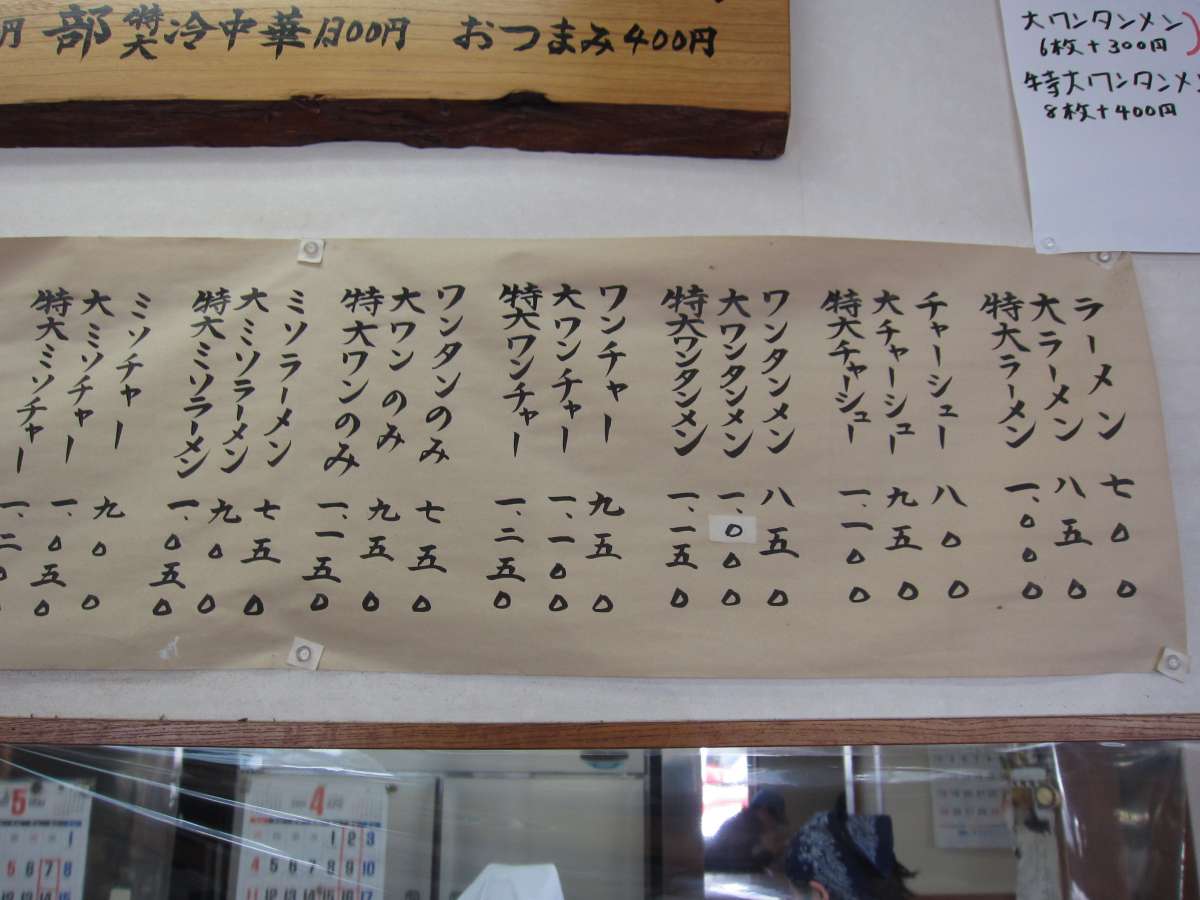 円 部 特大 冷中華 1300円 おつまみ 400円
大ワンタンメン
6枚+300円
特大ワンタンメン
8枚+400円
ラーメン 七〇〇
大ラーメン 八五〇
特大ラーメン 一、〇〇〇
チャーシュー 八〇〇
大チャーシュー 九五〇
特大チャーシュー 一、一〇〇
ワンタンメン 八五〇
大ワンタンメン 一、〇〇〇
特大ワンタンメン 一、一五〇
ワンチャー 九五〇
大ワンチャー 一、一〇〇
特大ワンチャー 一、二五〇
ワンタンのみ 七五〇
大ワンのみ 九五〇
特大ワンのみ 一、一五〇
ミソラーメン 七五〇
大ミソラーメン 九〇〇
特大ミソラーメン 一、〇五〇
ミソチャー 九〇〇
大ミソチャー 一、〇五〇
特大ミソチャー 一、二〇〇
5
1
5 6 7 8
4
2 3
4 5 6 7 8 9 10
11 12 13 14 15 16 17